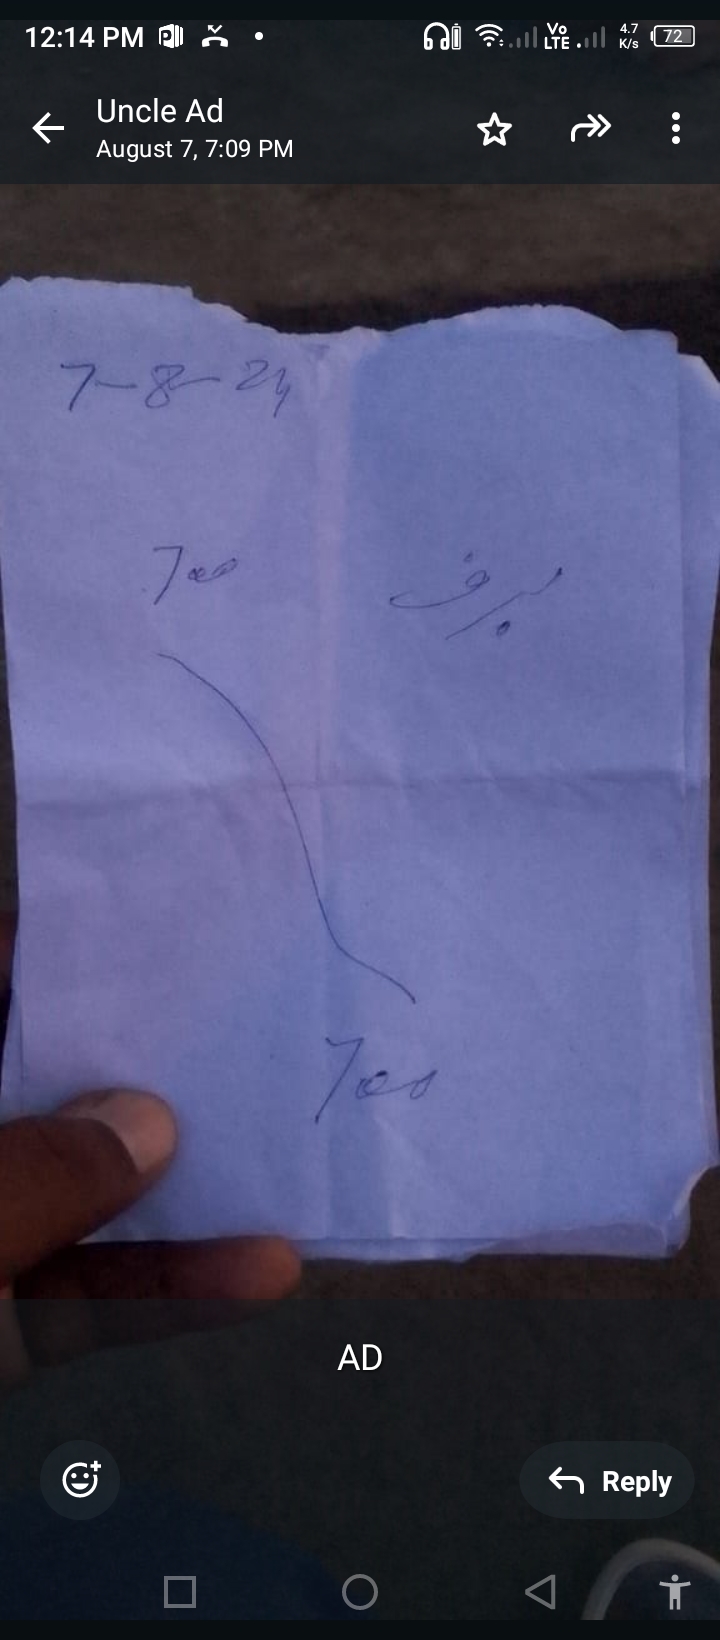 12:14 PM Vo LTE 4.7 K/s 72
Uncle Ad
August 7, 7:09 PM
7-8-24
700 برف
700
AD
Reply